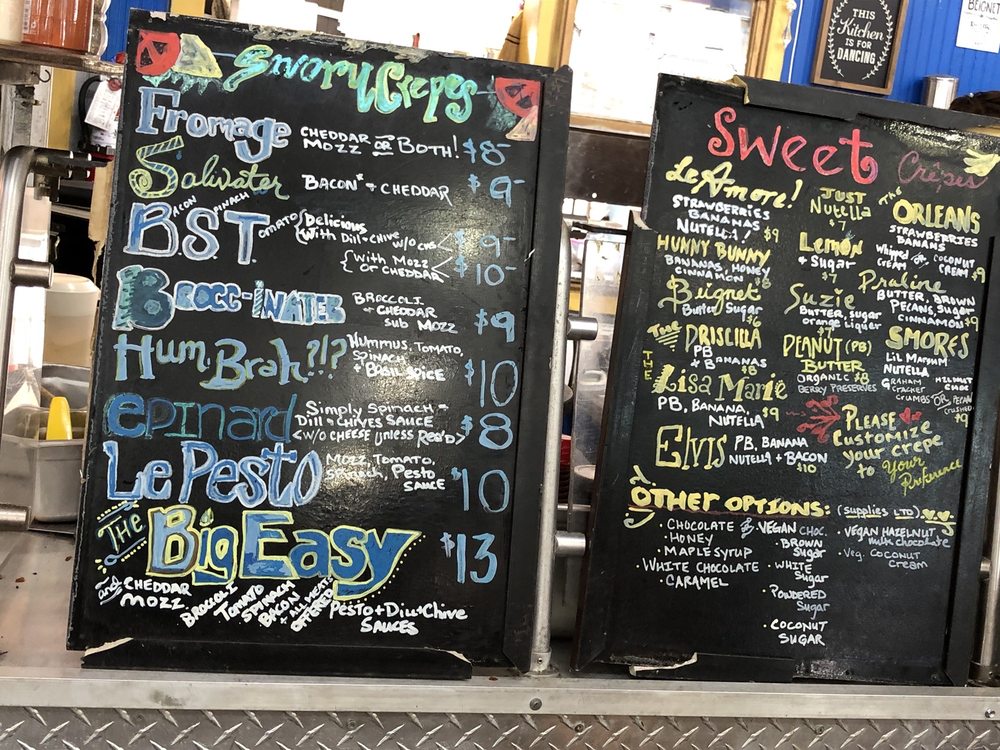 Savory Crepes
Fromage CHEDDAR OR MOZZ OR BOTH! $8-
Salivater BACON* + CHEDDAR $9-
BACON SPINACH
B.S.T. TOMATO Delicious
With Dill+Chive w/o CHS $9-
(With Mozz OR CHEDDAR $10-
Brocc-inater BROCCOLI
+ CHEDDAR
sub MOZZ $9
Hum Brah?!? Hummus, TOMATO,
SPINACH
+ BASIL SPICE $10
epinard Simply Spinach +
Dill + CHIVES SAUCE
w/o CHEESE unless Req'd $8
Le Pesto MOZZ, TOMATO,
Spinach, Pesto
SAUCE $10
THE Big Easy $13
and CHEDDAR
MOZZ
BROCCOLI
TOMATO
SPINACH
BACON
+ ALL MEATS
OFFERED
PESTO + Dill+Chive
SAUCES
THIS
Kitchen
IS FOR
DANCING
BEIGNET
SWeet Crêpes
Le Amore!
STRAWBERRIES
BANANAS
NUTELLA! $9
HUNNY BUNNY
BANANAS, HONEY
CINNAMON $8
Beignet
Butter Sugar
$6
THE PRISCILLA
PB
+ BANANAS
$8
THE Lisa Marie
PB, BANANA,
NUTELLA $9
ELVIS PB, BANANA
NUTELLA + BACON
$10
JUST
Nutella $7
Lemon
+ Sugar
$7
Suzie
BUTTER, Sugar
orange Liquer
PEANUT (PB)
BUTTER
ORGANIC $8
BERRY PRESERVES
THE ORLEANS
STRAWBERRIES
BANANS
Whipped OR COCONUT
CREAM CREAM $9
Praline
BUTTER, BROWN
PECANS, SUGAR
CINNAMON $9
SMORES
LIL MARSHM
NUTELLA
GRAHAM
CRACKER
CRUMBS OR PECAN
CRUSHED
$9
PLEASE
Customize
your crepe
to Your
Preference
OTHER OPTIONS: (supplies LTD)
· CHOCOLATE
· HONEY
· MAPLE SYRUP
· WHITE CHOCOLATE
· CARAMEL
· VEGAN CHOC.
· BROWN
Sugar
· WHITE
Sugar
· POWDERED
Sugar
· COCONUT
SUGAR
· VEGAN HAZELNUT
MILK CHOCOLATE
· Veg. COCONUT
Cream